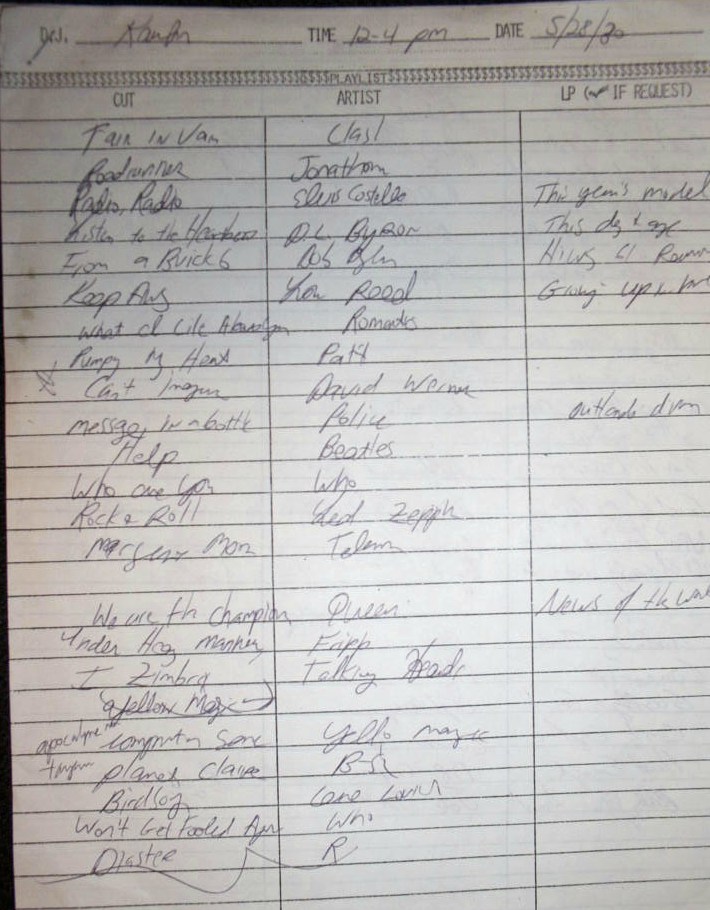 D.J. TIME 12-4 pm DATE 5/28/80
$$$$$$$$$$$$$$$$$$$$$$$$PLAYLIST$$$$$$$$$$$$$$$$$$$$$$$$
CUT ARTIST LP (✓ IF REQUEST)
Clash
Roadrunner Jonathan
Radio, Radio Elvis Costello This year's model
Listen to the D.L. Byron This day & age
From a Buick 6 Bob Hiway 61
Keep Away Lou Reed Growing up in
What I Like About you Romantics
Pumping My Heart Patti
Can't Imagine David Werner
message in a bottle Police outlandos d
Help Beatles
Who are you Who
Rock & Roll Led Zepplin
Moon
We are the Champion Queen News of the World
Under Heavy Manners Fripp
I Zimbra Talking Heads
a yellow Magic
computer game Yello magic
planet Claire B-52
Birdsong Lene Lovich
Won't Get Fooled Again Who
R